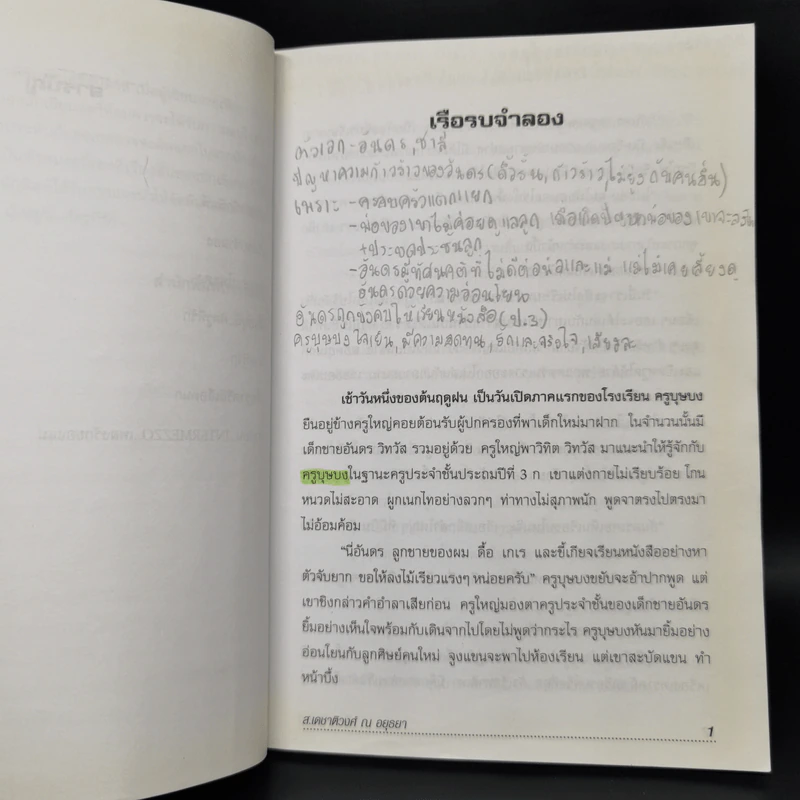 1
เรือรบจำลอง
ตัวเอก-อันดร,ชาลี
ปัญหาความก้าวร้าวของอันดร(ดื้อรั้น,ก้าวร้าว,ไม่ยุ่งกับคนอื่น)
เพราะ -ครอบครัวแตกแยก
-พ่อของเขาไม่ค่อยดูแลลูก เมื่อเกิดปัญหาพ่อของเขาจะ
+ประชดประชันลูก
-อันดรผู้ทัศนคติที่ไม่ดีต่อพ่อและแม่ แม่ไม่เคยเลี้ยงดู
อันดรด้วยความอ่อนโยน
อันดรถูกบังคับให้เรียนหนังสือ(ป.3)
ครูบุษบง ใจเย็น,มีความอดทน,รักและจริงใจ,เสียสละ
เช้าวันหนึ่งของต้นฤดูฝน เป็นวันเปิดภาคแรกของโรงเรียน ครูบุษบง
ยืนอยู่ข้างครูใหญ่คอยต้อนรับผู้ปกครองที่พาเด็กใหม่มาฝาก ในจำนวนนั้นมี
เด็กชายอันดร วิทวัส รวมอยู่ด้วย ครูใหญ่พาวิทิต วิทวัส มาแนะนำให้รู้จักกับ
ครูบุษบงในฐานะครูประจำชั้นประถมปีที่ 3 ก เขาแต่งกายไม่เรียบร้อย โกน
หนวดไม่สะอาด ผูกเนกไทอย่างลวกๆ ท่าทางไม่สุภาพนัก พูดจาตรงไปตรงมา
ไม่อ้อมค้อม
"นี่อันดร ลูกชายของผม ดื้อ เกเร และขี้เกียจเรียนหนังสืออย่างหา
ตัวจับยาก ขอให้ลงไม้เรียวแรงๆ หน่อยครับ" ครูบุษบงขยับจะอ้าปากพูด แต่
เขาชิงกล่าวคำอำลาเสียก่อน ครูใหญ่มองตาครูประจำชั้นของเด็กชายอันดร
ยิ้มอย่างเห็นใจพร้อมกับเดินจากไปโดยไม่พูดว่ากระไร ครูบุษบงหันมายิ้มอย่าง
อ่อนโยนกับลูกศิษย์คนใหม่ จูงแขนจะพาไปห้องเรียน แต่เขาสะบัดแขน ทำ
หน้าบึ้ง
ส.เดชาติวงศ์ ณ อยุธยา
1